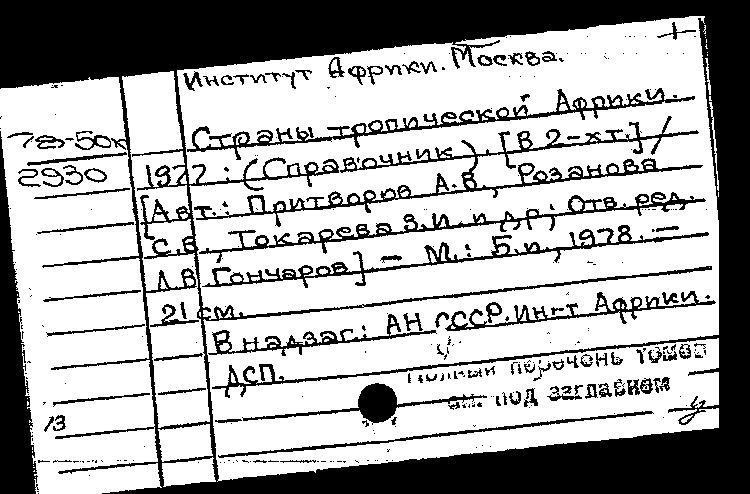 Институт Африки. Москва.
78-50к Страны тропической Африки.
2930 1977 : (Справочник). [В 2-х т.] /
[Авт.: Притворов А.В., Розанова
С.В., Токарева З.И. и др; Отв. ред.
Л.В Гончаров] — М.: Б.и., 1978. —
21 см.
В надзаг.: АН СССР. Ин-т Африки.
ДСП.
Полный перечень томов
см. под заглавием
13